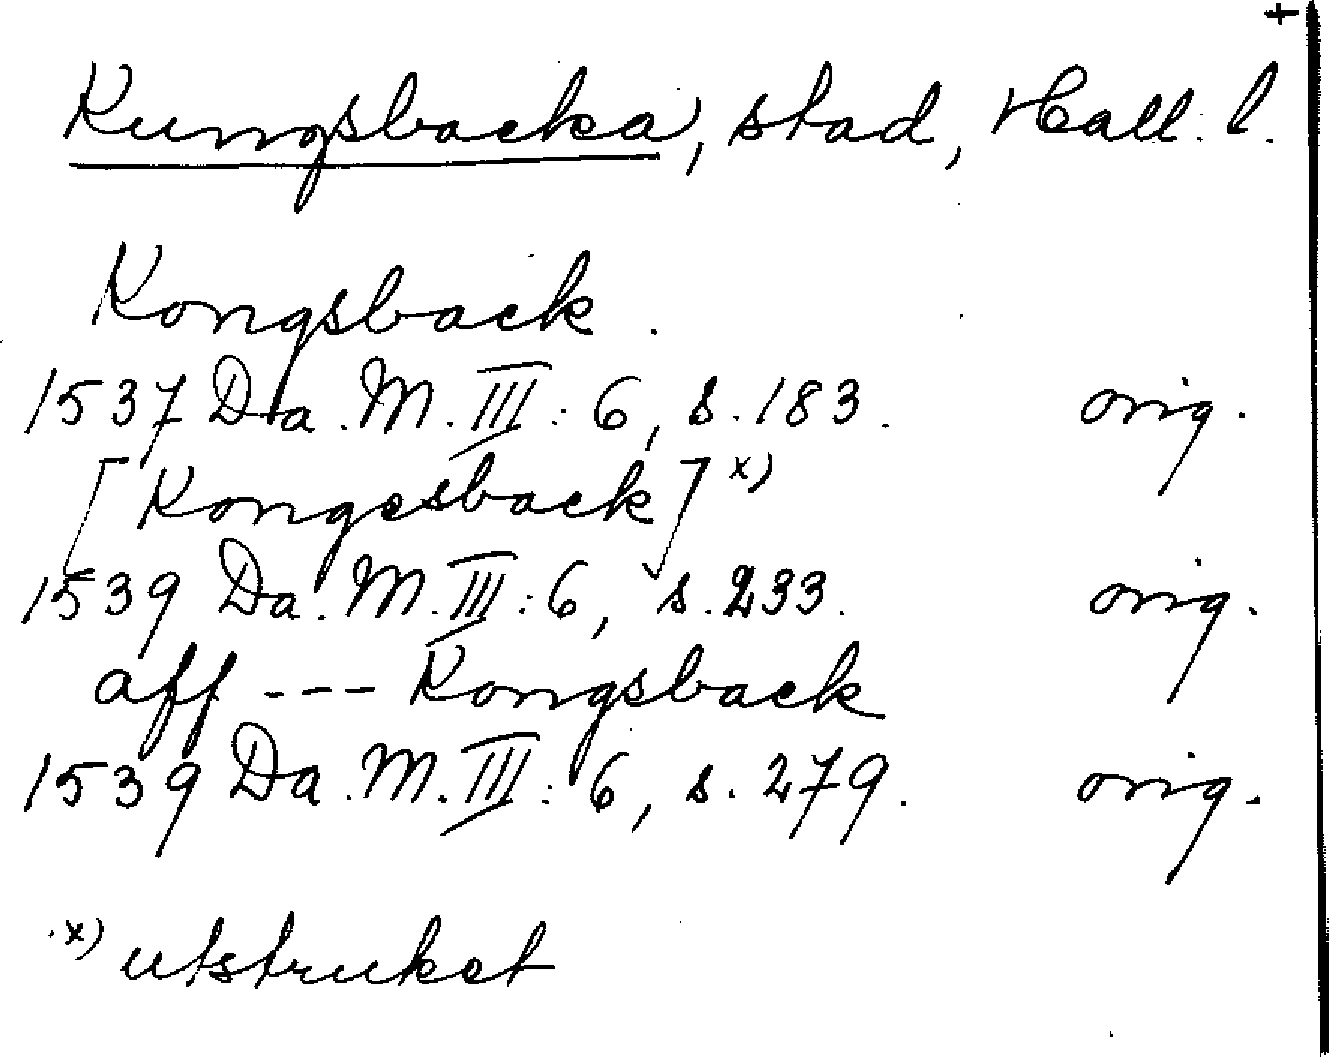 Kungsbacka, stad, Hall. l.
Kongsback.
1537 Da. M. III: 6, s. 183. orig.
[Kongesback] x)
1539 Da. M. III: 6, s. 233. orig.
aff --- Kongsback
1539 Da. M. III: 6, s. 279. orig.
x) utstruket